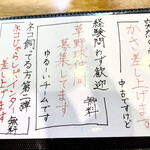 かさ差し上げます
中古ですけど
草野球仲間
募集してます
経験問わず歓迎
ゆるーいチームです
無料
ネコ飼ってる方第二弾
差し上げます
無料